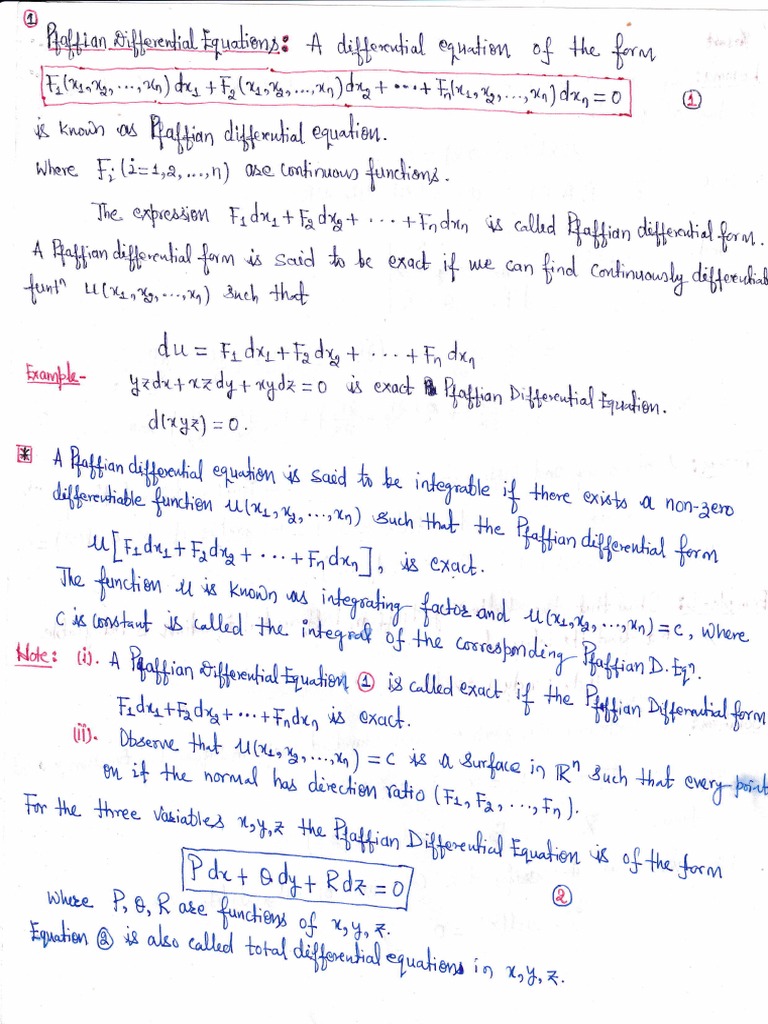 ①
Pfaffian Differential Equations: A differential equation of the form
F₁(x₁,x₂,...,xₙ)dx₁ + F₂(x₁,x₂,...,xₙ)dx₂ + ... + Fₙ(x₁,x₂,...,xₙ)dxₙ = 0 ①
is known as Pfaffian differential equation.
Where Fᵢ (i=1,2,...,n) are continuous functions.
The expression F₁dx₁+F₂dx₂+ ... +Fₙdxₙ is called Pfaffian differential form.
A Pfaffian differential form is said to be exact if we can find continuously differentiab
funtⁿ u(x₁,x₂,...,xₙ) such that
du = F₁dx₁+F₂dx₂+ ... +Fₙdxₙ
Example- yzdx+xzdy+xydz=0 is exact Pfaffian Differential Equation.
d(xyz)=0.
* A Pfaffian differential equation is said to be integrable if there exists a non-zero
differentiable function u(x₁,x₂,...,xₙ) such that the Pfaffian differential form
u[F₁dx₁+F₂dx₂+ ... +Fₙdxₙ], is exact.
The function u is known as integrating factor and u(x₁,x₂,...,xₙ)=c, where
c is constant is called the integral of the corresponding Pfaffian D. Eqⁿ.
Note: (i). A Pfaffian Differential Equation ① is called exact if the Pfaffian Differential form
F₁dx₁+F₂dx₂+...+Fₙdxₙ is exact.
(ii). Observe that u(x₁,x₂,...,xₙ)=c is a surface in ℝⁿ such that every point
on it the normal has direction ratio (F₁,F₂,...,Fₙ).
For the three variables x,y,z the Pfaffian Differential Equation is of the form
Pdx + Qdy + Rdz = 0 ②
where P,Q,R are functions of x,y,z.
Equation ② is also called total differential equations in x,y,z.